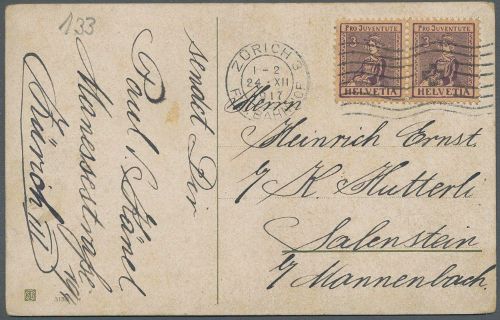 133
sendet Dir
Paul v. Känel
Manessestraße 190
Zürich III
ZÜRICH 3
1-2
24. XII
17
BAHNHOF
PRO JUVENTUTE
3
HELVETIA
PRO JUVENTUTE
3
HELVETIA
Herrn
Heinrich Ernst.
c/ K. Hutterli
Salenstein
c/ Mannenbach.